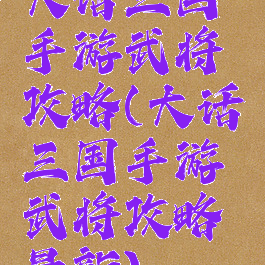 大话三国
手游武将
攻略(大话
三国手游
武将攻略
最新)